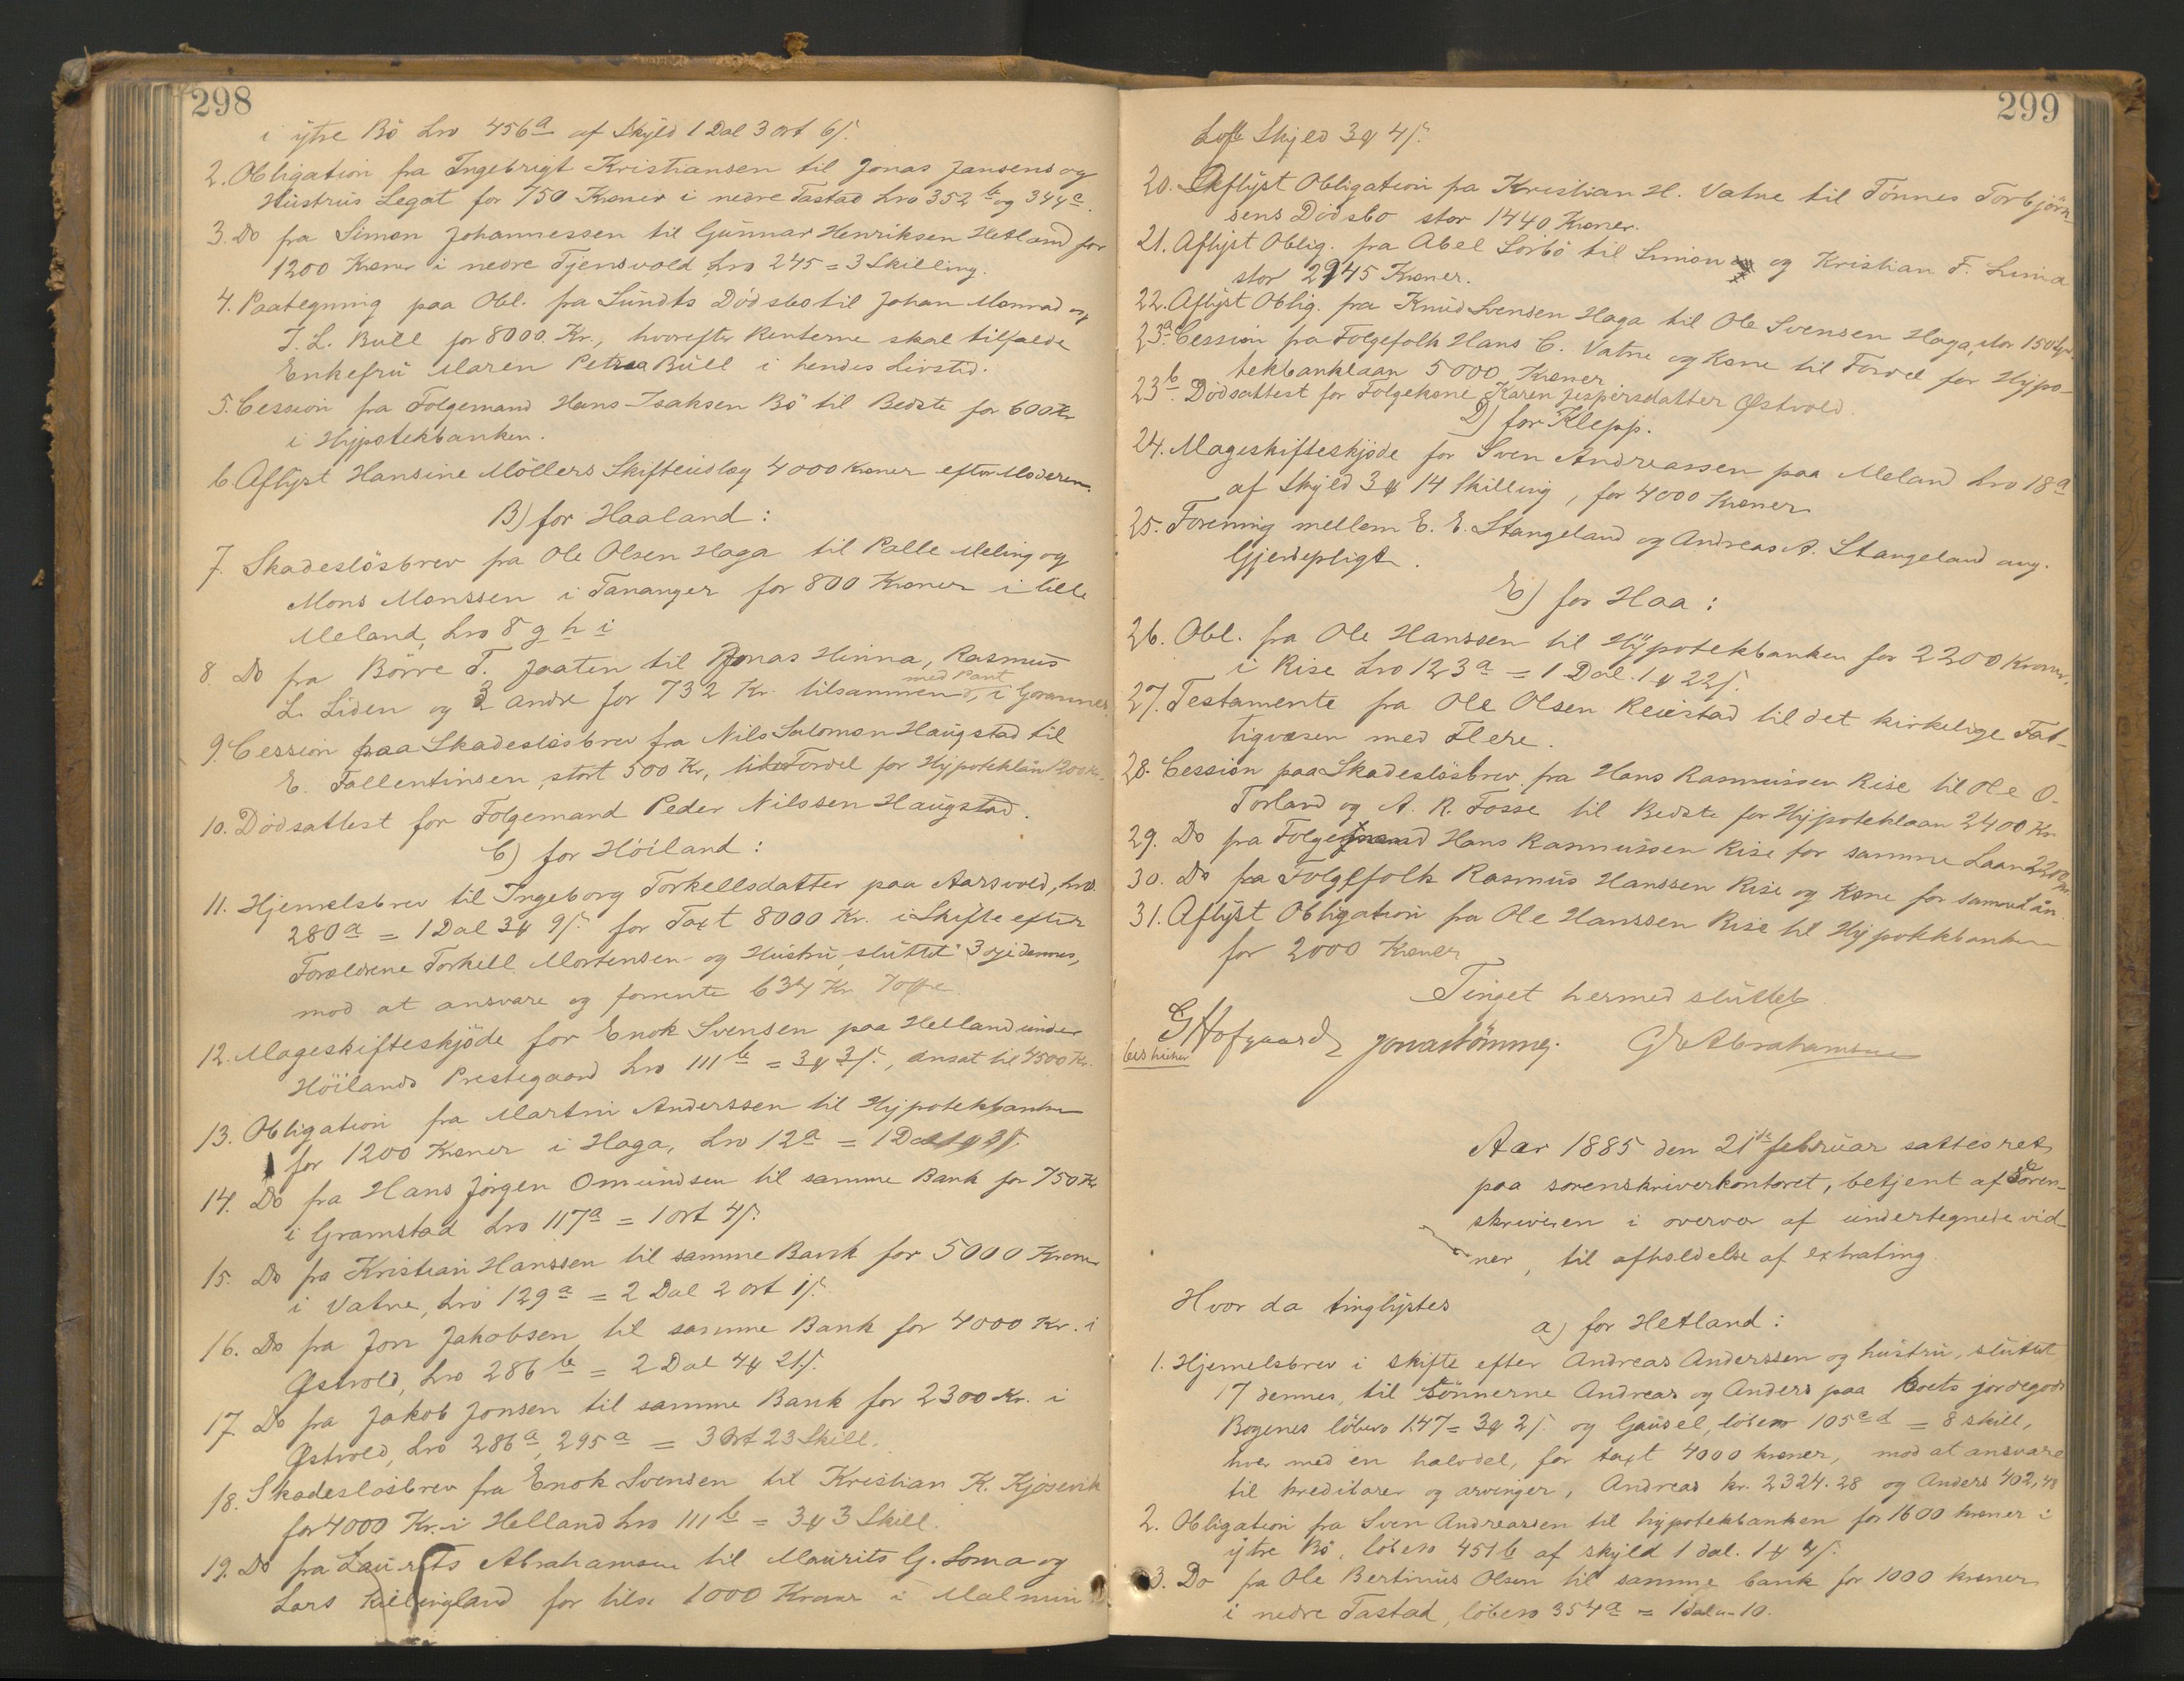 298
i ytre Bö Lno 456a af Skyld 1 Dal 3 ort 6 ſ.
2. Obligation fra Ingebrigt Kristiansen til Jonas Jansens og
Hustrus Legat for 750 Kroner i nedre Tastad Lno 352 b og 344 a.
3. Do fra Simon Johannessen til Gunnar Henriksen Hetland for
1200 Kroner i nedre Tjensvold Lno 245 = 3 Skilling.
4. Paategning paa Obl. fra Sundts Dödsbo til Johan Monrad og
J. L. Bull for 8000 Kr., hvorefter Renterne skal tilfalde
Enkefru Maren Petrea Bull i hendes Livstid.
5. Cession fra Folgemand Hans Isaksen Bö til Bedste for 600 Kr
i Hypotekbanken.
6. Aflyst Hansine Möllers Skifteudlæg 4000 Kroner efter Moderen.
B) for Haaland:
7. Skadeslösbrev fra Ole Olsen Haga til Palle Meling og
Mons Monssen i Tananger for 800 Kroner i lille
Meland, Lno 8 g h i
8. Do fra Börre T. Jaaten til Jonas Hinna, Rasmus
L. Liden og 2 andre for 732 Kr. tilsammen, med Pant i Grannes.
9. Cession paa Skadeslösbrev fra Nils Salomon Haugstad til
E. Fallentinsen, stort 500 Kr, til Fordel for Hypoteklån 1200 Kr.
10. Dödsattest for Folgemand Peder Nilssen Haugstad.
C) for Höiland:
11. Hjemmelsbrev til Ingeborg Torkellsdatter paa Aarsvold, Lno
280 a = 1 Dal 3 ꝗ 9 ſ. for Taxt 8000 Kr. i Skifte efter
Forældrene Torkell Mortensen og Hustru, sluttet 3 dennes,
mod at ansvare og forrente 634 Kr 70 Øre.
12. Mageskifteskjöde for Enok Svensen paa Helland under
Höilands Prestegaard Lno 111 b = 3 ꝗ 3 ſ., ansat til 4500 Kr.
13. Obligation fra Martin Anderssen til Hypotekbanken
for 1200 Kroner i Haga, Lno 12 a = 1 Dal 1 ꝗ 3 ſ.
14. Do fra Hans Jörgen Omundsen til samme Bank for 750 Kr
i Gramstad Lno 117 a = 1 ort 4 ſ.
15. Do fra Kristian Hanssen til samme Bank for 5000 Kroner
i Vatne, Lno 129 a = 2 Dal 2 ort 1 ſ.
16. Do fra Jon Jakobsen til samme Bank for 4000 Kr. i
Østvold, Lno 286 b = 2 Dal 4 ꝗ 21 ſ.
17. Do fra Jakob Jonsen til samme Bank for 2300 Kr. i
Østvold, Lno 286 a, 295 a = 3 Ort 23 Skill.
18. Skadeslösbrev fra Enok Svensen til Kristian K. Kjosevik
for 4000 Kr. i Helland Lno 111 b = 3 ꝗ 3 Skill.
19. Do fra Laurits Abrahamsen til Maurits G. Soma og
Lars Kellingland for tils. 1000 Kroner i Malmin
299
Loft Skyld 3 ꝗ 4 ſ.
20. Aflyst Obligation fra Kristian H. Vatne til Tönnes Torbjörn-
sens Dödsbo stor 1440 Kroner.
21. Aflyst Oblig. fra Abel Sörbö til Simon og Kristian F. Lima
stor 2945 Kroner.
22. Aflyst Oblig. fra Knud Svensen Haga til Ole Svensen Haga, stor 150
23 a. Cession fra Folgefolk Hans C. Vatne og Kone til Fordel for Hypo-
tekbanklaan 5000 Kroner
23 b. Dödsattest for Folgekone Karen Jespersdatter Østvold.
D) for Klepp.
24. Mageskifteskjöde for Sven Andreassen paa Meland Lno 18 a
af Skyld 3 ꝗ 14 Skilling, for 4000 Kroner
25. Forening mellem E. E. Stangeland og Andreas A. Stangeland ang.
Gjerdepligt.
E) for Haa:
26. Obl. fra Ole Hanssen til Hypotekbanken for 2200 Kroner,
i Rise Lno 123 a = 1 Dal. 1 ꝗ 22 ſ.
27. Testamente fra Ole Olsen Reiestad til det kirkelige Fat-
tigvæsen med Flere.
28. Cession paa Skadeslösbrev fra Hans Rasmussen Rise til Ole O.
Torland og A. R. Fosse til Bedste for Hypoteklaan 2400 Kr
29. Do fra Folgemand Hans Rasmussen Rise for samme Laan 2200 Kr
30. Do fra Folgefolk Rasmus Hanssen Rise og Kone for samme Lån.
31. Aflyst Obligation fra Ole Hanssen Rise til Hypotekbanken
for 2000 Kroner
Tinget hermed sluttet
G Hofgaard Jonas Tömmer. G Abrahamsen
Aar 1885 den 21de februar sattes ret
paa sorenskriverkontoret, betjent af Soren-
skriveren i overvær af undertegnede vid-
ner, til afholdelse af extrating.
Hvor da tinglystes
a) for Hetland:
1. Hjemelsbrev i skifte efter Andreas Anderssen og hustru, sluttet
17 dennes, til sönnerne Andreas og Anders paa boets jordegods
Bogenes löbeno 147 = 3 ꝗ 2 ſ. og Gausel, löbeno 105 c d = 8 skill,
hver med en halvdel, for taxt 4000 kroner, mod at ansvare
til kreditorer og arvinger, Andreas kr. 2324.28 og Anders 402,48
2. Obligation fra Sven Andreassen til hypotekbanken for 1600 kroner i
ytre Bö, löbeno 451 b af skyld 1 dal. 1 ꝗ 4 ſ.
3. Do fra Ole Bertinius Olsen til samme bank for 1000 kroner
i nedre Tastad, löbeno 354 a = 1 dal - 10.